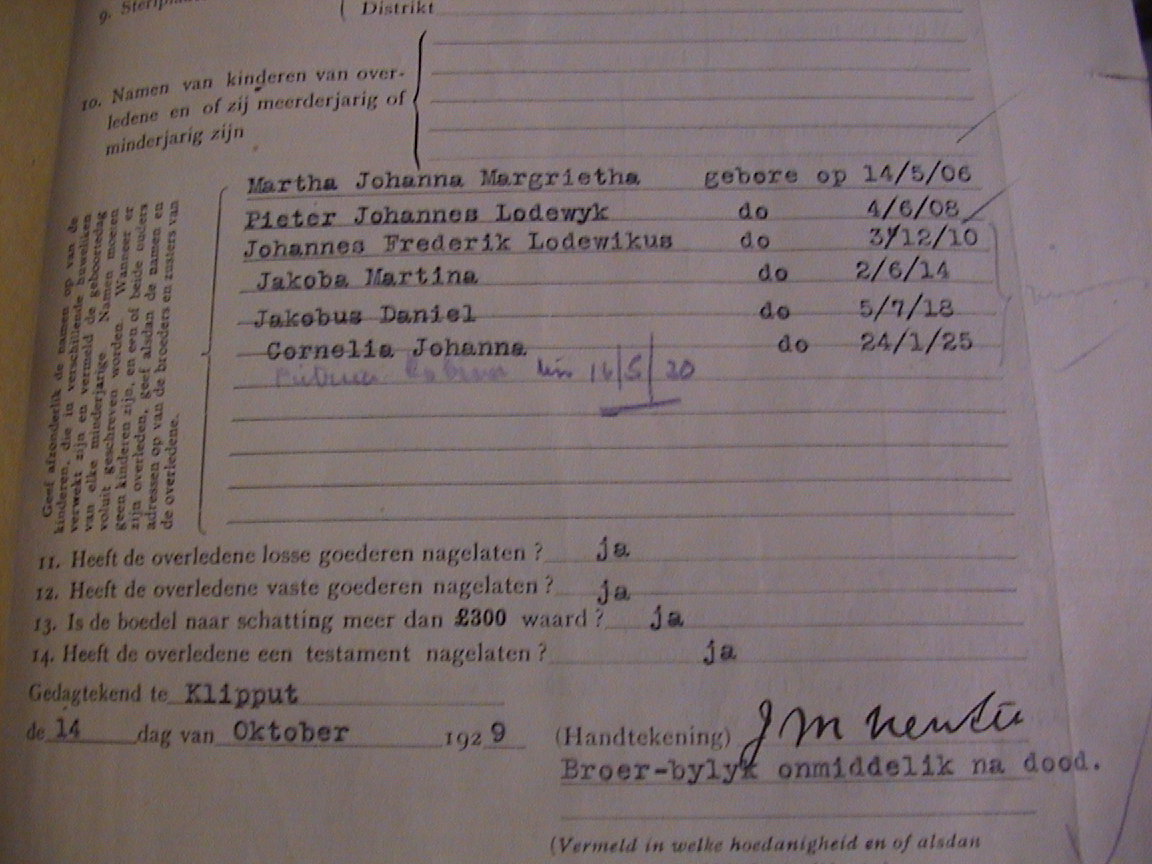 9.
Distrikt
10. Namen van kinderen van over-
ledene en of zij meerderjarig of
minderjarig zijn
Geef afzonderlijk de namen op van de
kinderen, die in verschillende huweliken
verwekt zijn en vermeld de geboortedag
van elke minderjarige. Namen moeten
voluit geschreven worden. Wanneer er
geen kinderen zijn, en een of beide ouders
zijn overleden, geef alsdan de namen en
adressen op van de broeders en zusters van
de overledene.
Martha Johanna Margrietha gebore op 14/5/06
Pieter Johannes Lodewyk do 4/6/08
Johannes Frederik Lodewikus do 3/12/10
Jakoba Martina do 2/6/14
Jakobus Daniel do 5/7/18
Cornelia Johanna do 24/1/25
16/5/20
11. Heeft de overledene losse goederen nagelaten ? ja
12. Heeft de overledene vaste goederen nagelaten ? ja
13. Is de boedel naar schatting meer dan £300 waard ? ja
14. Heeft de overledene een testament nagelaten ? ja
Gedagtekend te Klipput
de 14 dag van Oktober 1929
(Handtekening) J M
Broer-bylyk onmiddelik na dood.
(Vermeld in welke hoedanigheid en of alsdan